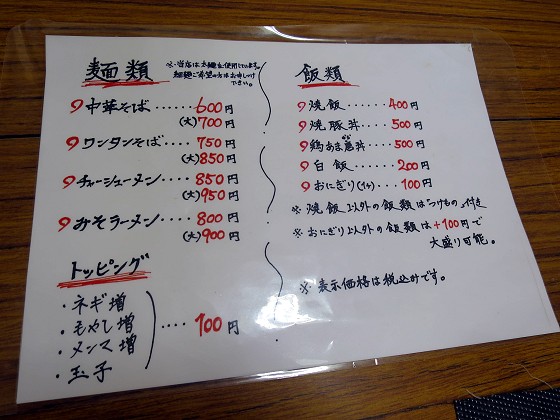 麺類
※当店は太麺を使用しています。
細麺ご希望の方はお申しつけ
下さい。
中華そば……600円
(大)700円
ワンタンそば‥‥750円
(大)850円
チャーシューメン‥‥850円
(大)950円
みそラーメン‥‥800円
(大)900円
トッピング
・ネギ増
・もやし増
・メンマ増
・玉子
‥‥100円
飯類
焼飯‥‥‥400円
焼豚丼‥‥‥500円
鶏あま唐丼‥‥500円
白飯‥‥‥200円
おにぎり(1ケ)‥100円
※焼飯以外の飯類はつけもの付き
※おにぎり以外の飯類は+100円で
大盛り可能。
※表示価格は税込みです。